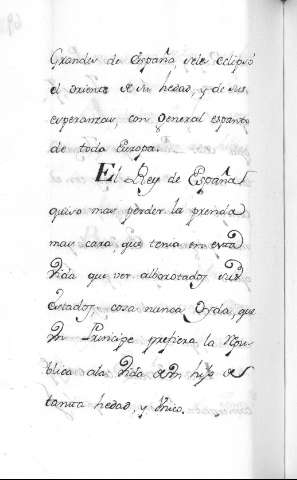 Grandes de España sele eclipsó
el oriente de su hedad, y de sus
esperanzas, con general espanto
de toda Europa.
El Rey de España
quiso mas perder la prenda
mas cara, que tenia en esta
Vida que ver alborotados sus
estados, cosa nunca Oyda, que
Un Principe prefiera la Repu-
blica ala Vida de Un hijo de
tanta hedad, y Unico.